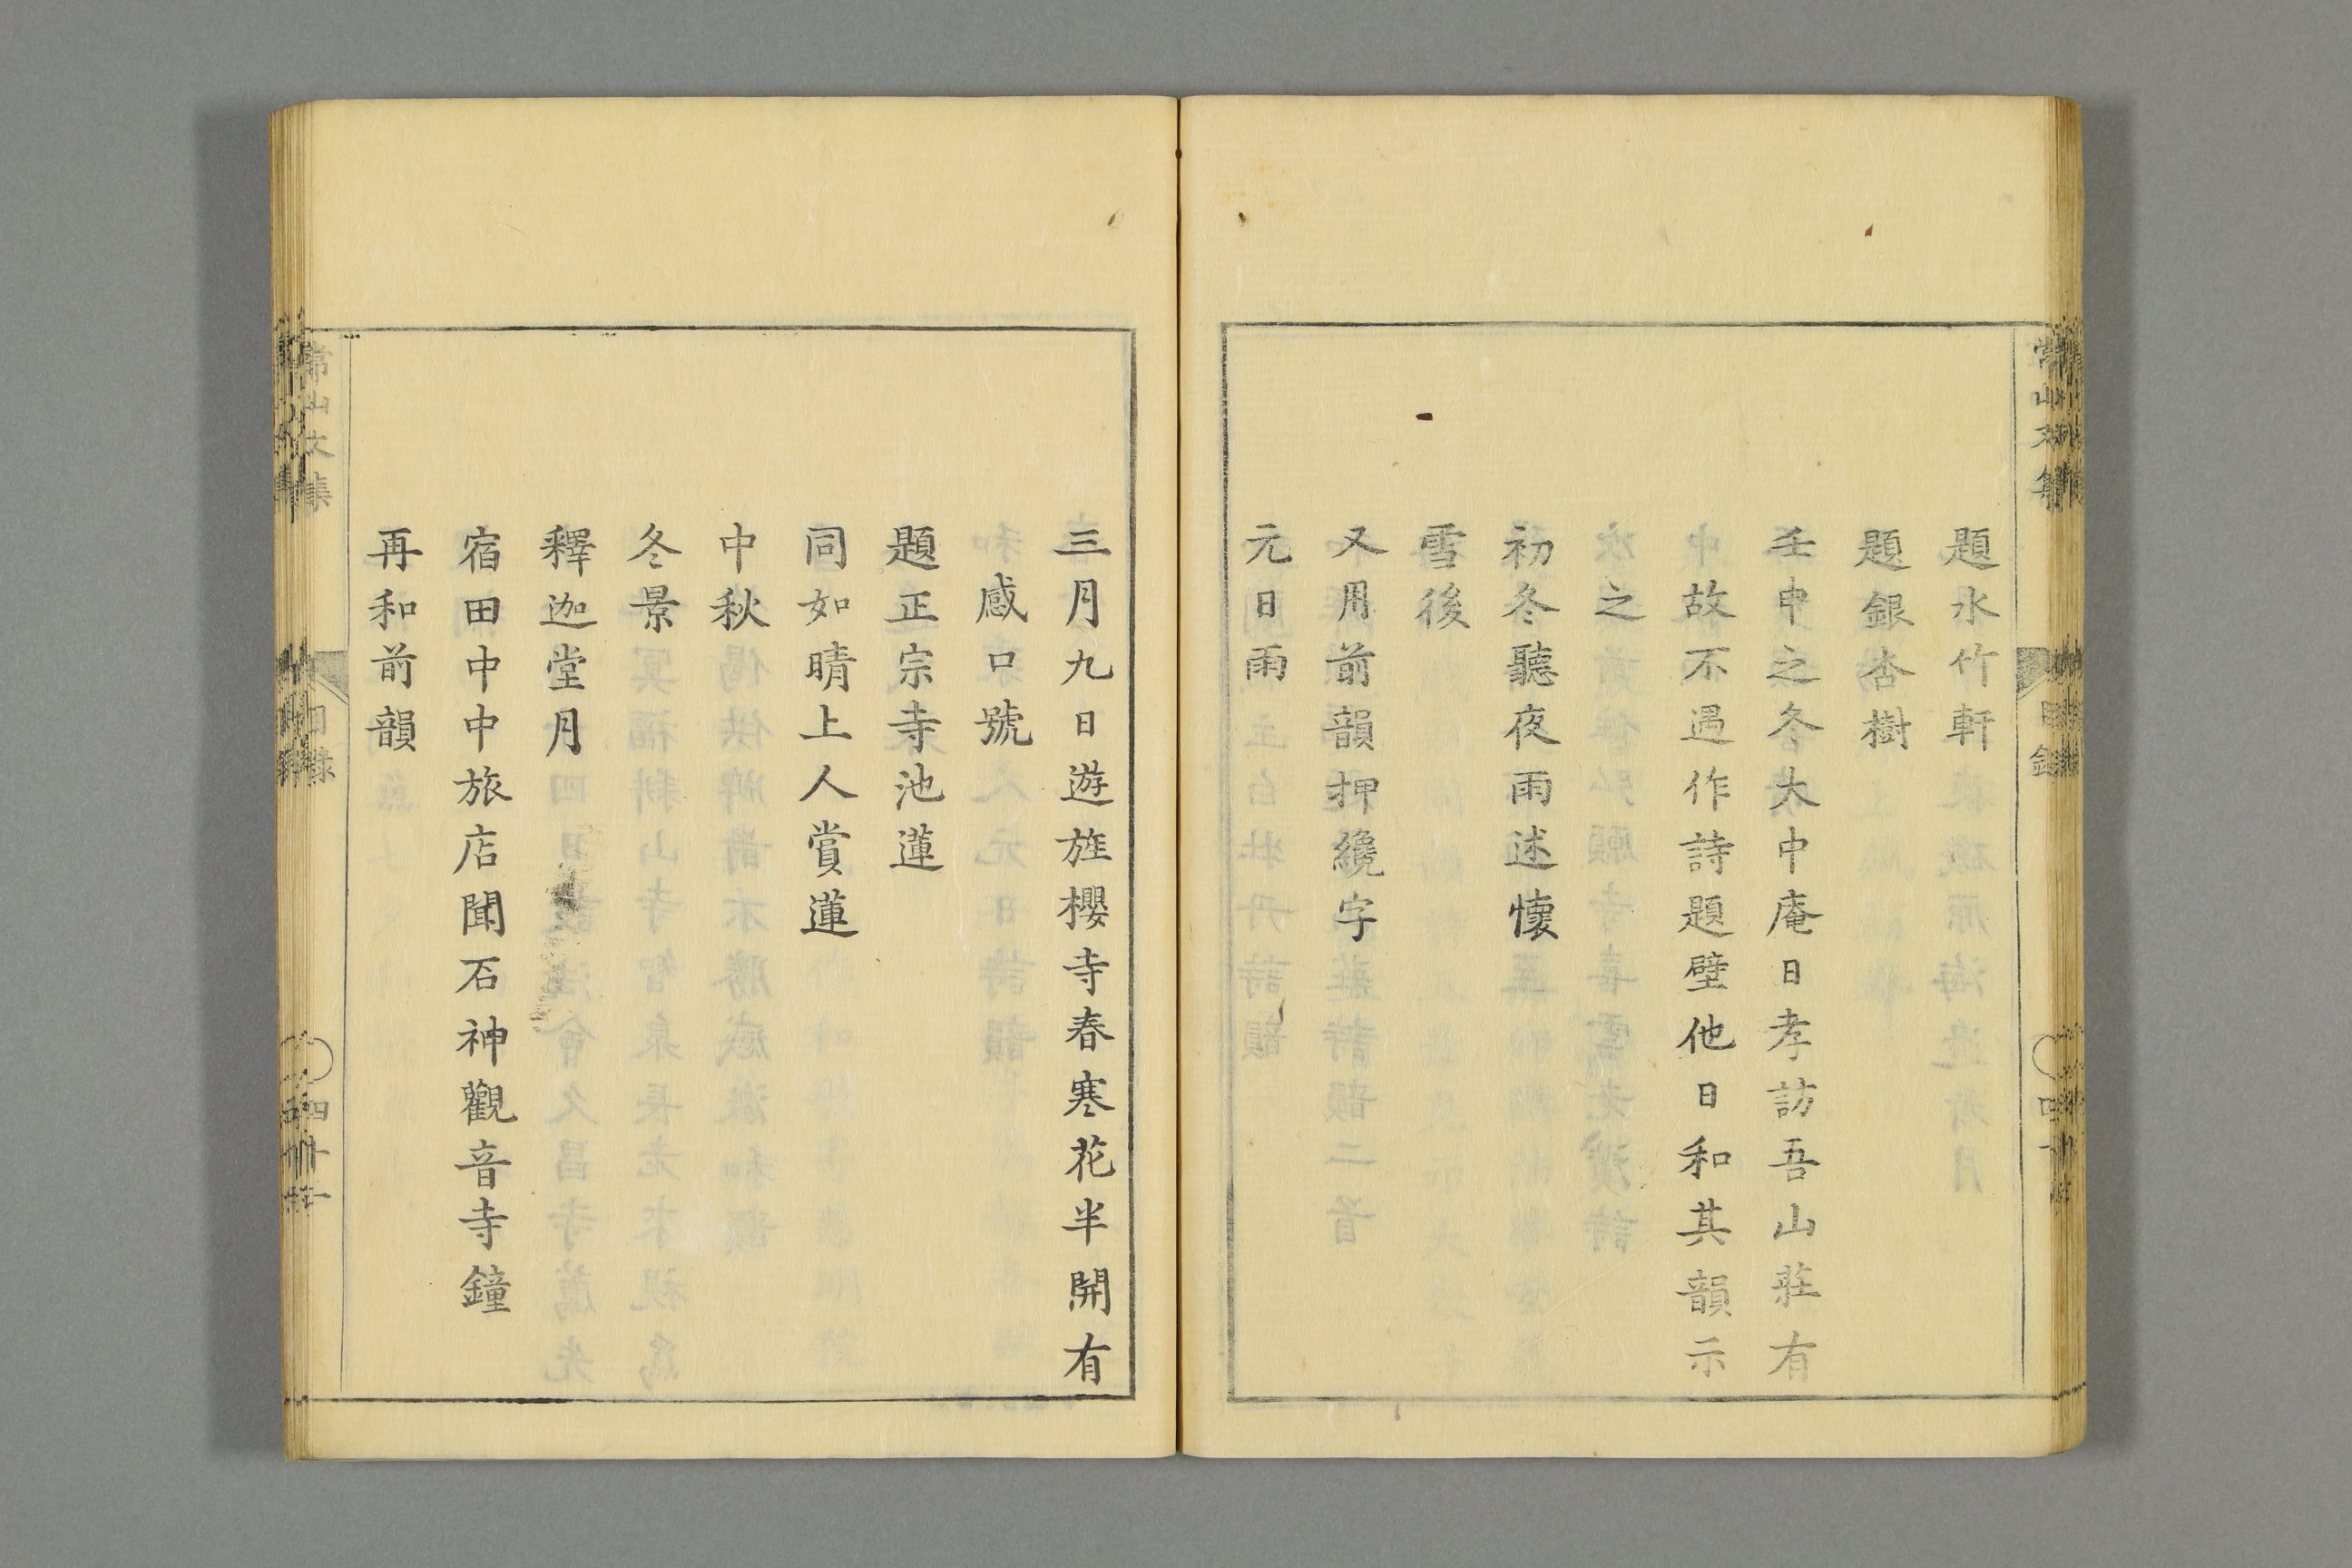 題水竹軒
題銀杏樹
壬申之冬大中庵日孝訪吾山莊有
中故不遇作詩題壁他日和其韻示
之
初冬聽夜雨述懷
雪後
又用前韻押纔字
元日雨
三月九日遊旌櫻寺春寒花半開有
感口號
題正宗寺池蓮
同如晴上人賞蓮
中秋
冬景
釋迦堂月
宿田中中旅店聞石神觀音寺鐘
再和前韻
常山文集
目錄